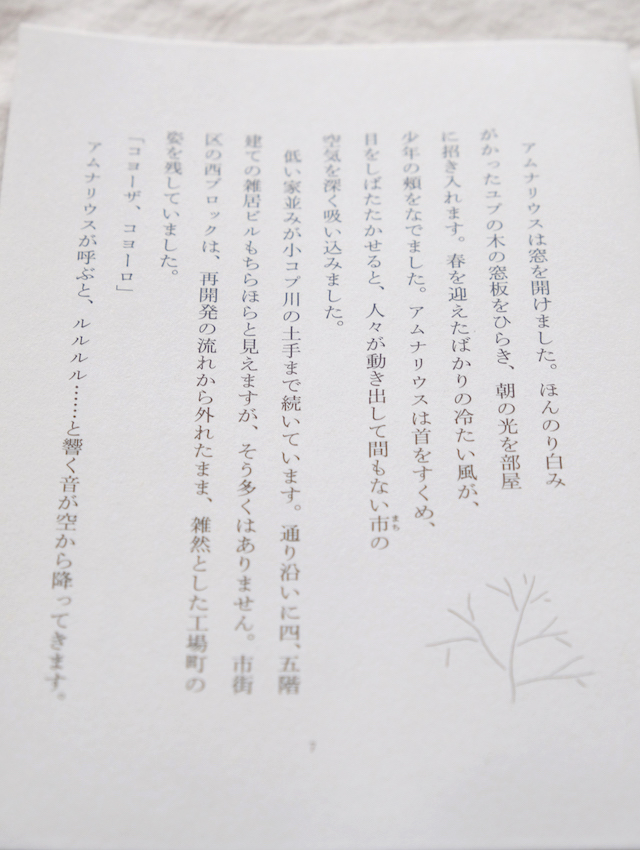 アムナリウスは窓を開けました。ほんのり白み
がかったユブの木の窓板をひらき、朝の光を部屋
に招き入れます。春を迎えたばかりの冷たい風が、
少年の頬をなでました。アムナリウスは首をすくめ、
目をしばたたかせると、人々が動き出して間もない市の
まち
空気を深く吸い込みました。
低い家並みが小コブ川の土手まで続いています。通り沿いに四、五階
建ての雑居ビルもちらほらと見えますが、そう多くはありません。市街
区の西ブロックは、再開発の流れから外れたまま、雑然とした工場町の
姿を残していました。
「コヨーザ、コヨーロ」
アムナリウスが呼ぶと、ルルルル……と響く音が空から降ってきます。
7